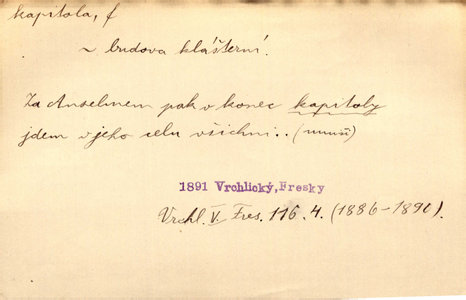 kapitola, f
~ budova klášterní.
Za Anselmem pak v konec kapitoly
jdem v jeho celu všichni.. (mniši)
1891 Vrchlický, Fresky
Vrchl. V. Fres. 116. 4. (1886-1890).